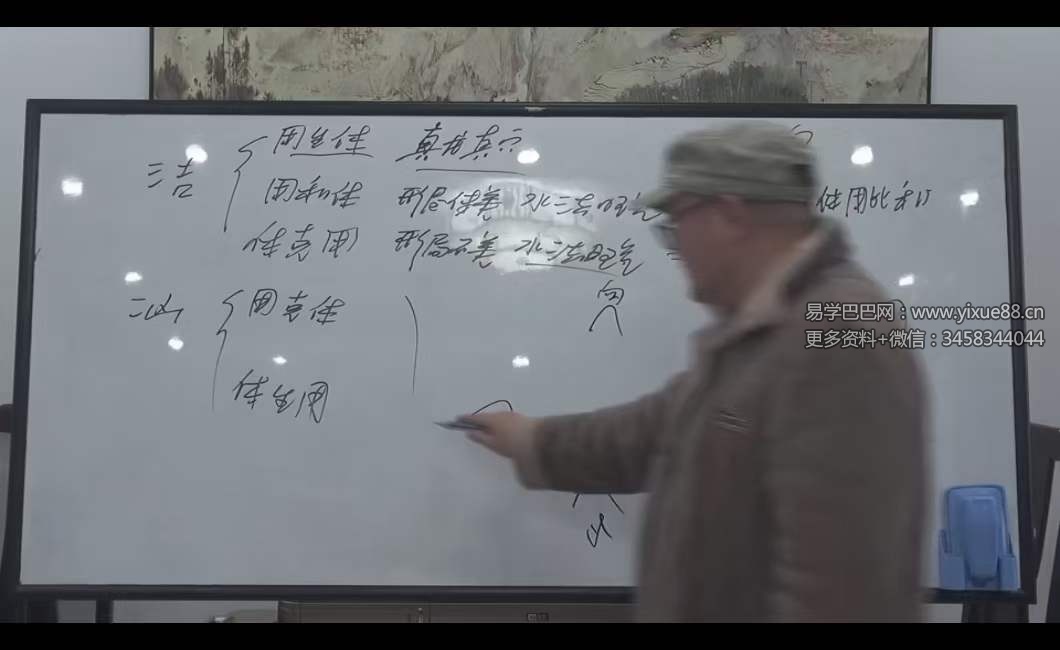 三吉 用生体 真龙真穴
用和体 形局体美 水三法旺
体克用 形局不美 水三法旺
体用比和
向
二凶 用克体
体生用
易学巴巴网：www.yixue88.cn
更多资料+微信：3458344044